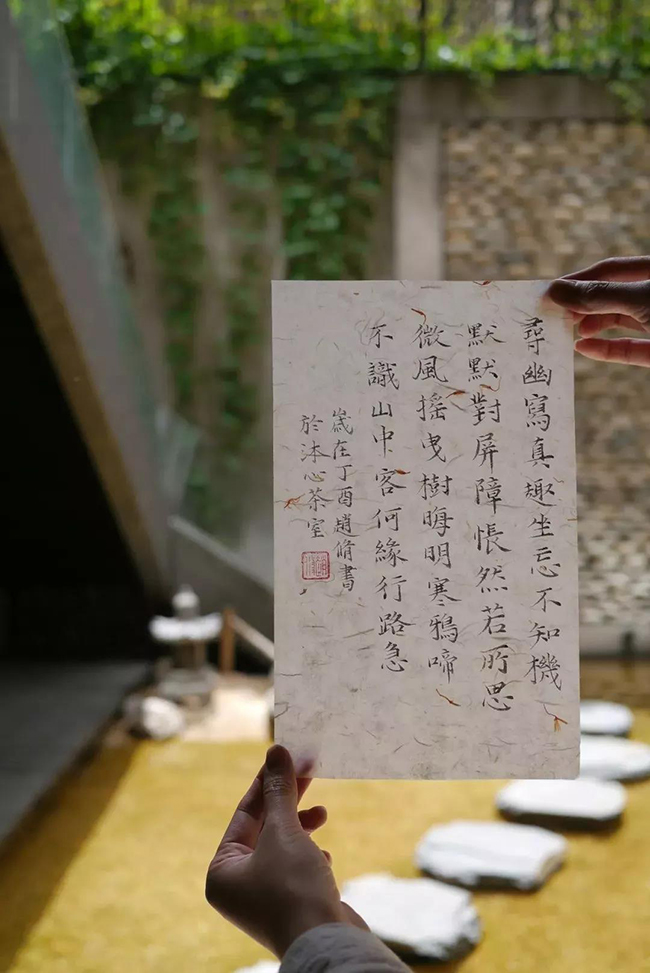 尋幽寫真趣坐忘不知機
默默對屏障悵然若所思
微風搖曳樹晦明寒鴉啼
不識山中客何緣行路急
歲在丁酉趙脩書
於沐心茶室